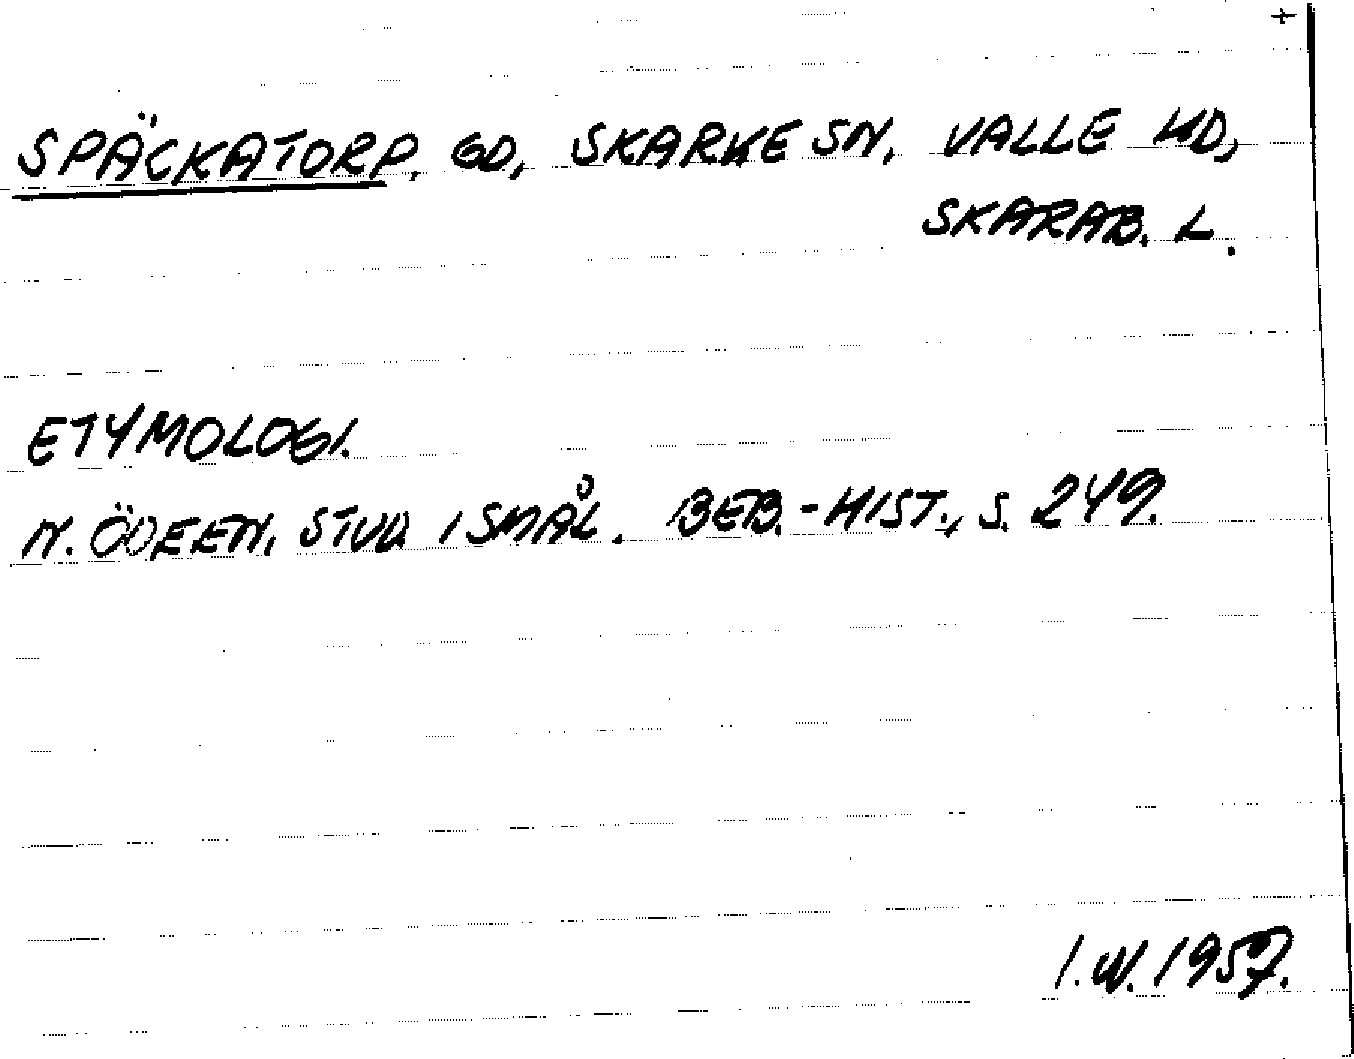 +
SPÄCKATORP, GD, SKARKE SN, VALLE HD,
SKARAB. L.
ETYMOLOGI.
N. ÖDEEN, STUD I SMÅL. BEB.-HIST., S. 249.
I.W. 1957.